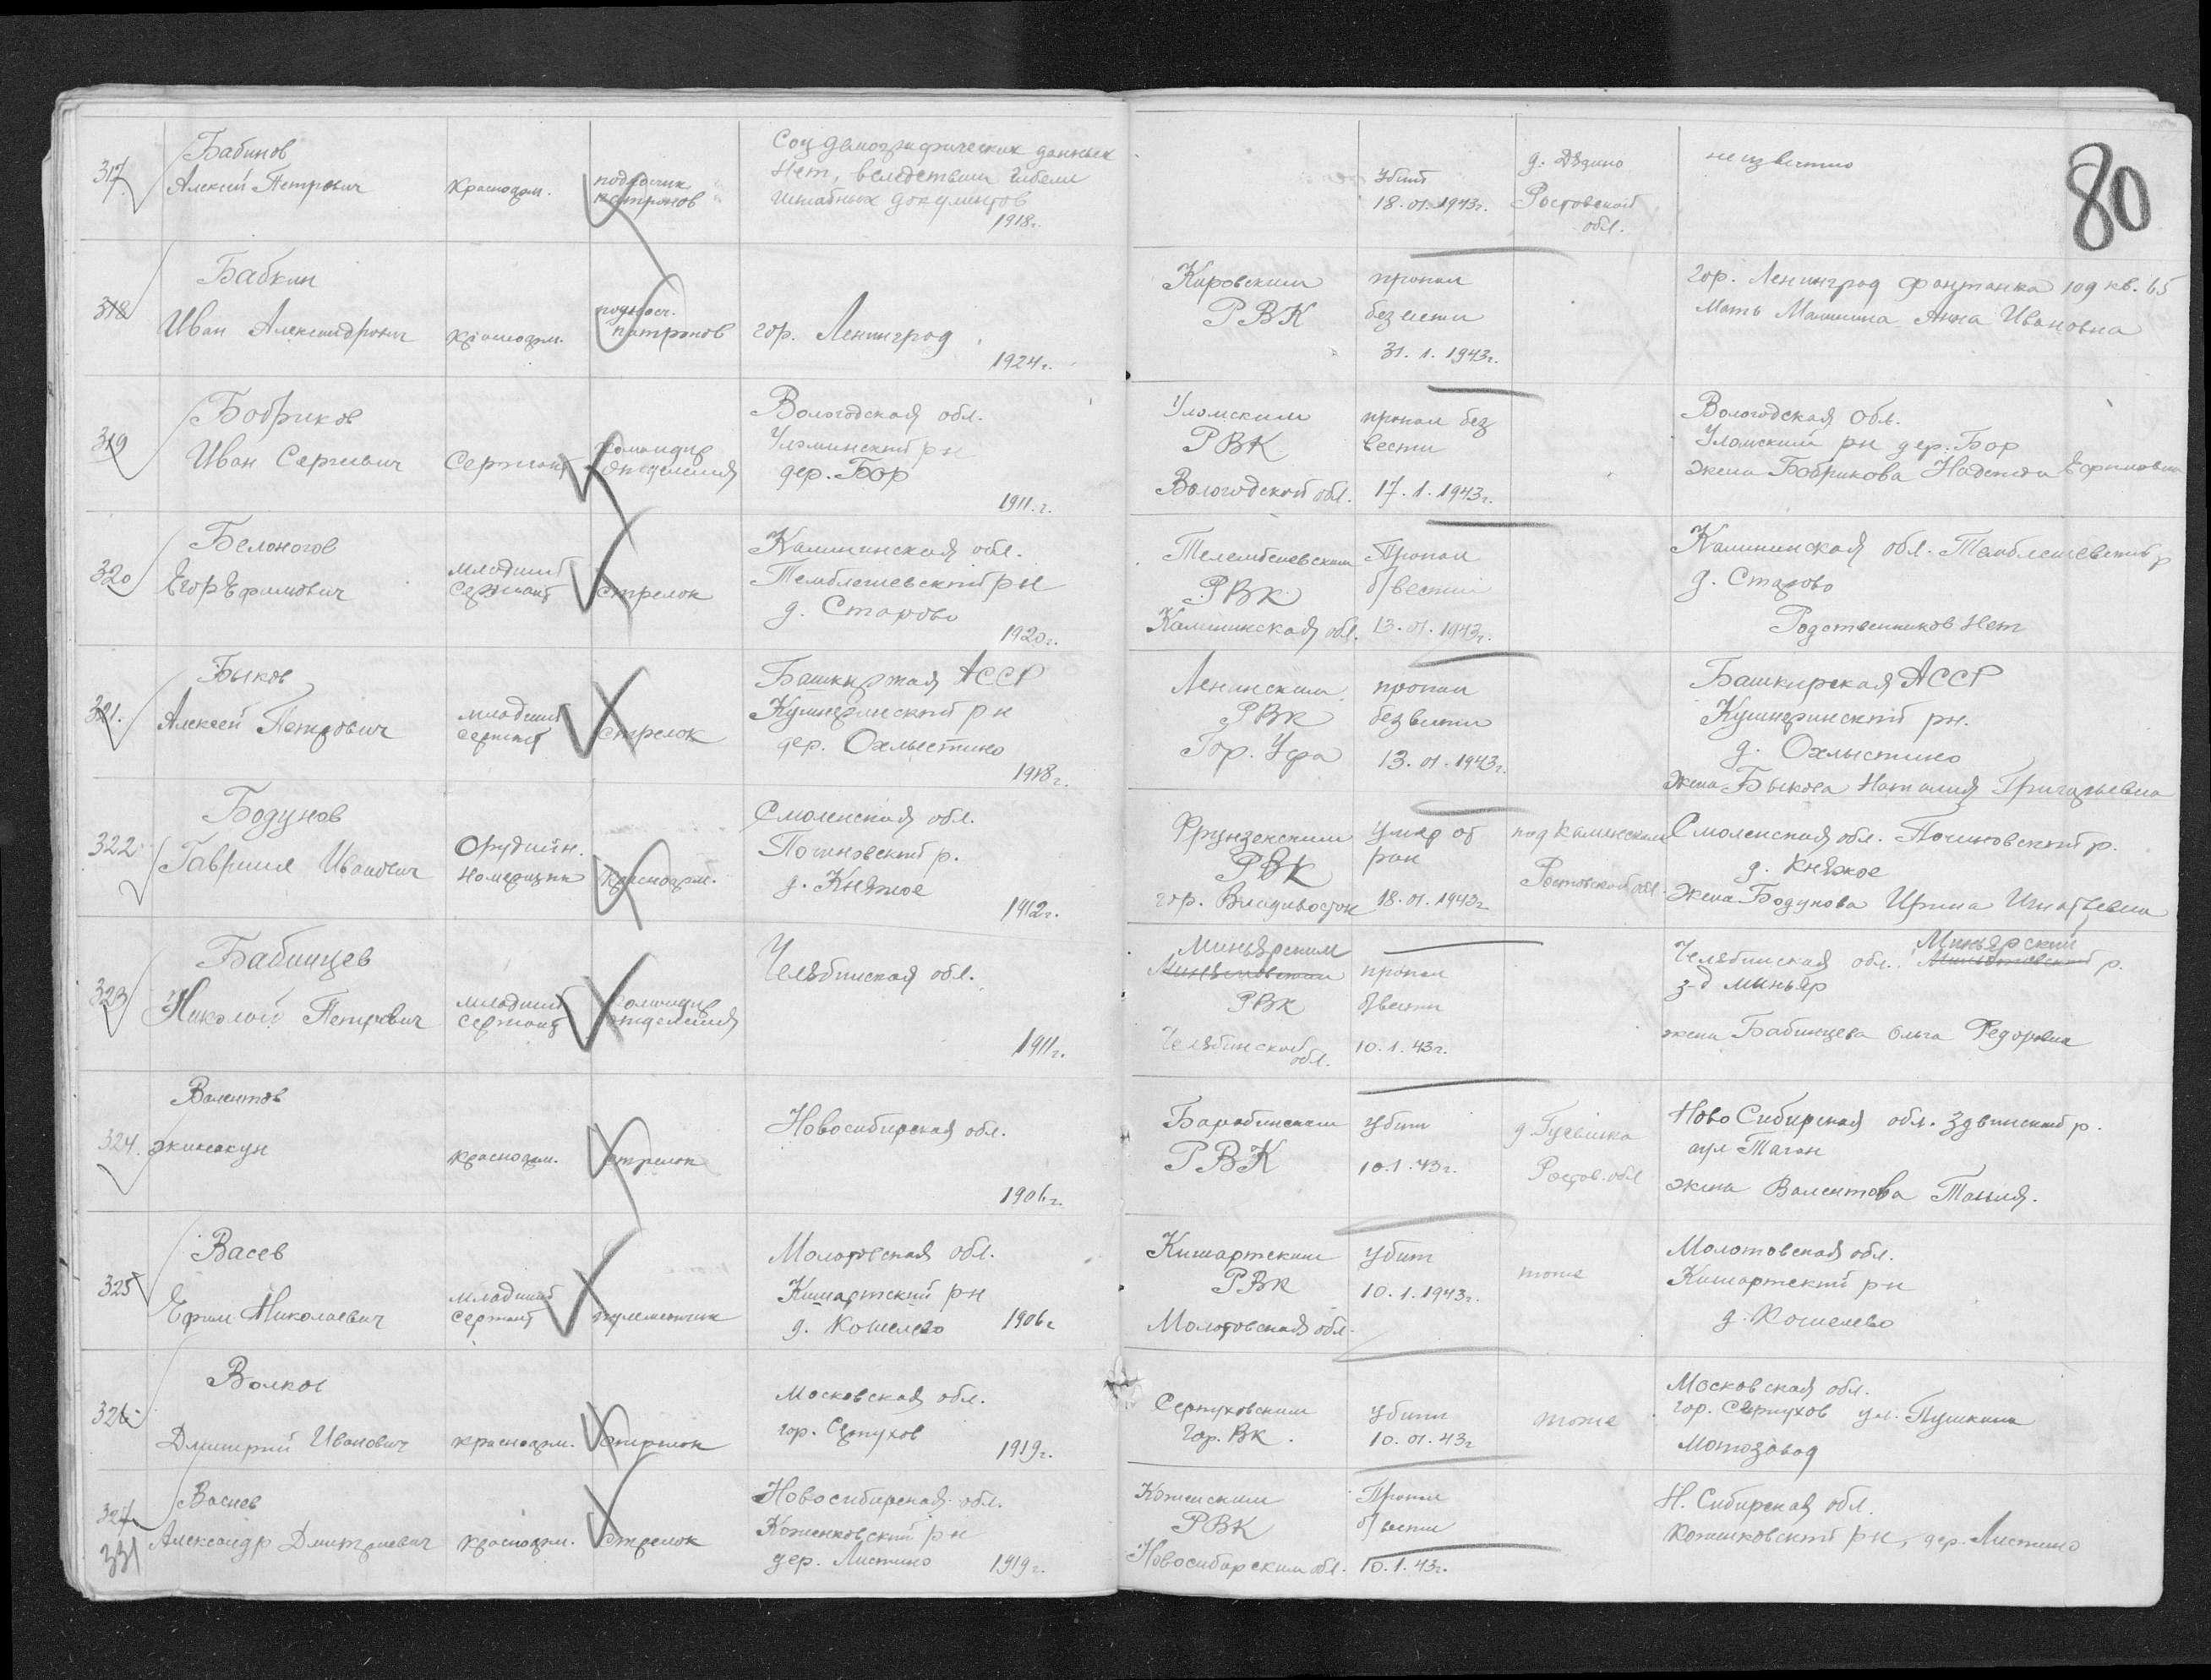 80
317
Бабинов
Алексей Петрович
Красноарм.
подносчик
патронов
Соц демографических данных
Нет, вследствии гибели
штабных документов
1918г.
Убит
18.01.1943г.
Ростовской
обл.
неизвестно
318
Бабкин
Иван Александрович
красноарм.
поднос.
патронов
гор. Ленинград
1924г.
Кировским
РВК
пропал
без вести
31.1.1943г.
гор. Ленинград Фонтанка 109 кв. 65
Мать Анна Ивановна
319
Бобриков
Иван Сергеевич
Сержант
командир
отделения
Вологодская обл.
рн
дер. Бор
1911.г.
Уломским
РВК
Вологодской обл.
пропал без
вести
17.1.1943г.
Вологодская Обл.
Уломский рн дер. Бор
жена Бобрикова Надежда Ефимовна
320
Белоногов
Егор Ефимович
младший
сержант
стрелок
Калининская обл.
Темблешевский рн
д. Старово
1920г.
РВК
Калининская обл.
Пропал
б/вести
13.01.1943г.
Калининская обл. р
д. Старово
Родственников Нет
321.
Быков
Алексей Петрович
младший
сержант
стрелок
Башкирская АССР
рн
дер. Охлыстино
1918г.
Ленинским
РВК
Гор. Уфа
пропал
без вести
13.01.1943г.
Башкирская АССР
рн.
д. Охлыстино
жена Быкова Наталия Григорьевна
322
Бодунов
Гавриил Иванович
Орудийн.
красноарм.
Смоленская обл.
Починовский р.
д. Княжое
1912г.
Фрунзенским
РВК
гор. Владивосток
Умер от
ран
18.01.1943г
под Каменском
Ростовской обл.
Смоленская обл. Починовский р.
д. Княжое
Жена Бодунова Ирина Игнатьевна
323
Бабинцев
Николай Петрович
младший
сержант
командир
отделения
Челябинская обл.
1911г.
Миньярским
РВК
Челябинской
обл.
пропал
б/вести
10.1.43г.
Миньярский
Челябинская обл. р.
з-д Миньяр
жена Бабинцева Ольга Федоровна
324.
Валентов
красноарм.
стрелок
Новосибирская обл.
1906г.
Барабинским
РВК
Убит
10.1.43г.
Ростов. обл
Ново Сибирская обл. Здвинский р.
аул Таган
жена Валентова
325
Васев
Ефим Николаевич
младший
сержант
пулеметчик
Молотовская обл.
Кишартский рн
д. Кошелево
1906г
Кишартским
РВК
Молотовская обл.
Убит
10.1.1943г.
тоже
Молотовская обл.
Кишартский рн
д. Кошелево
326
Волков
Дмитрий Иванович
красноарм.
стрелок
Московская обл.
гор. Серпухов
1919г.
Серпуховским
Гор. ВК.
Убит
10.01.43г
тоже
Московская обл.
гор. Серпухов ул. Пушкина
Мотозавод
327
331
Васиев
Александр Дмитриевич
красноарм.
стрелок
Новосибирская обл.
рн
дер. Листино
1919г.
РВК
Новосибирским обл.
Пропал
б/вести
10.1.43г.
Н. Сибирская обл.
рн, дер. Листино